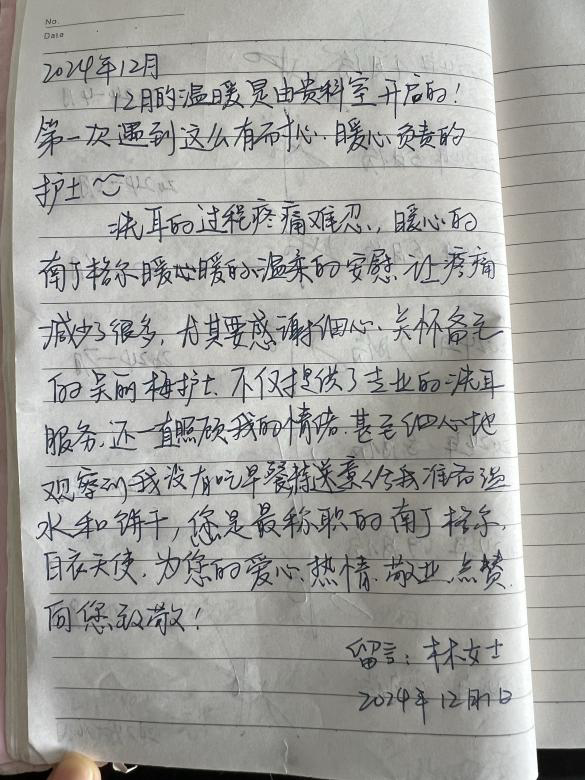 No.
Date
2024年12月
12月的温暖是由贵科室开启的!
第一次遇到这么有耐心、暖心负责的
护士
洗耳的过程疼痛难忍,暖心的
南丁格尔暖心暖的温柔的安慰,让疼痛
减少了很多,尤其要感谢细心、关怀备至
的吴丽梅护士.不仅提供了专业的洗耳
服务,还一直照顾我的情绪.甚至细心地
观察到我没有吃早餐特送 给我准备温
水和饼干,您是最称职的南丁格尔,
白衣天使.为您的爱心、热情、敬业、点赞
向您致敬!
留言:林女士
2024年12月1日